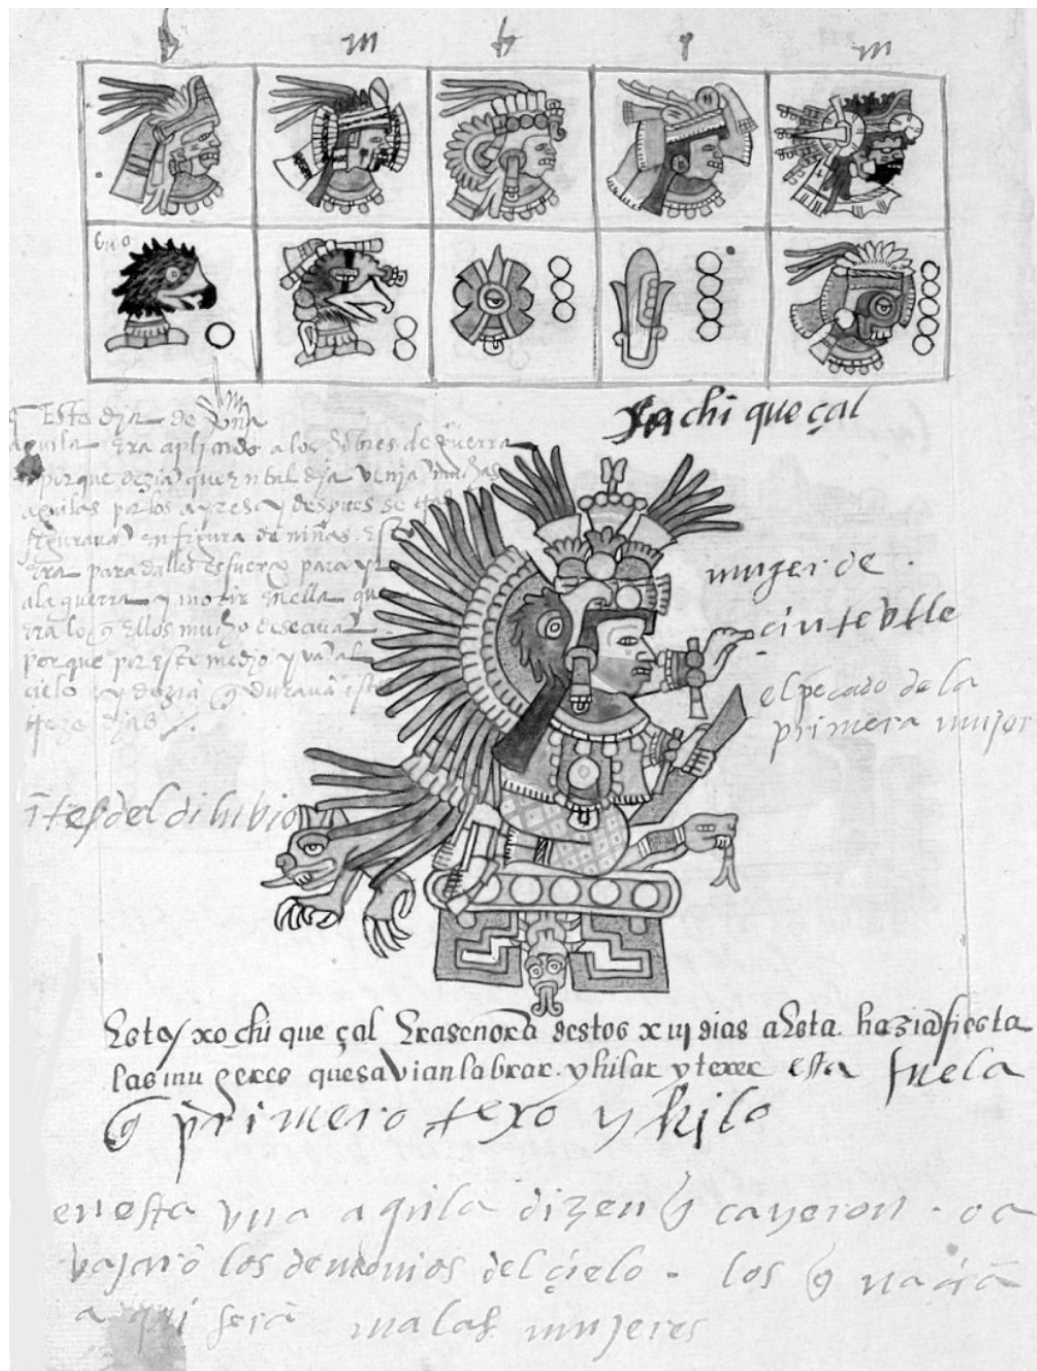 b m b y m
Uno
Este dia de una
aguila era aplicado a los hõbres de guerra
porque deziã que en tal dia venjã muchas
aguilas por los ayres y despues se
figuravã en figura de niñas. Esto
era para dalles esfuerço para yr
a la guerra y morir en ella que
era lo q̃ ellos mucho deseavã
porque por este medio yvã al
cielo y deziã q̃ duravã
treze dias
Sochi queçal
muger de
cinteutle
el pecado de la
primera mujer
ãtes del dilubio
Esta xochi que çal Era señora destos xiij dias a Esta haziã fiesta
las mugeres que savian labrar y hilar y texer esta fue la
q̃ primero texo y hilo
en esta vna aguila dizen q̃ cayeron o a
vajarõ los demonios del çielo. los q̃ naciã
aqui serã malas mujeres